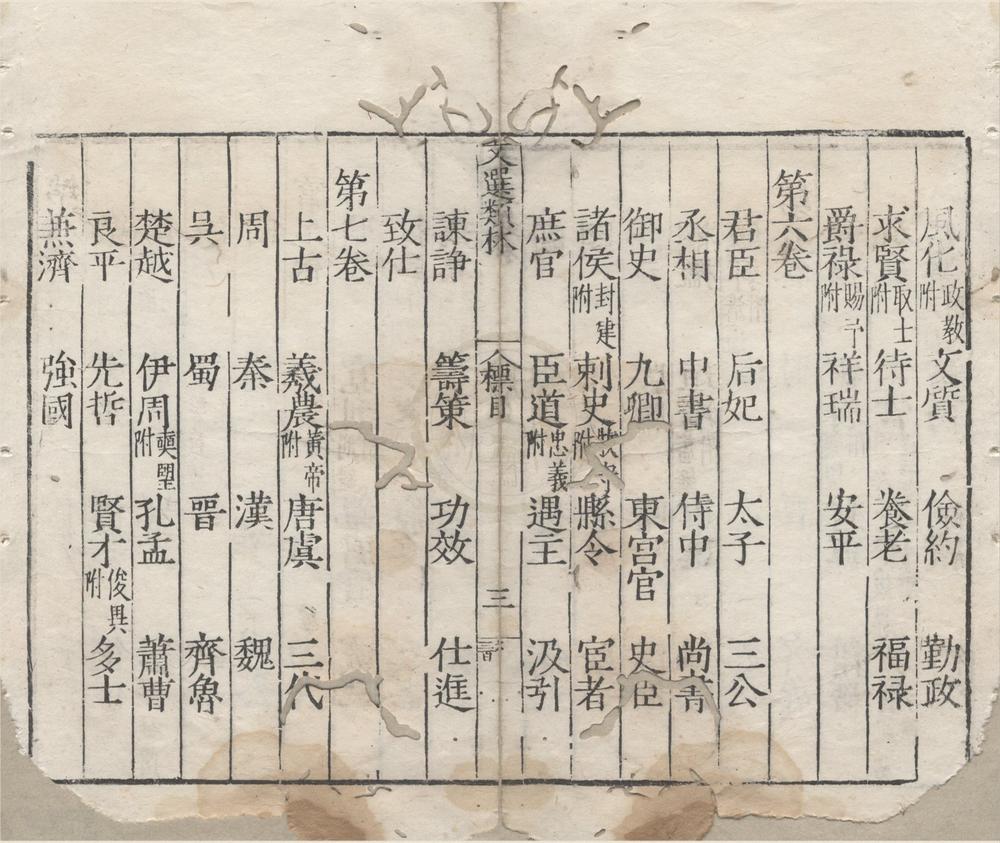 風化政教附 文質 儉約 勤政
求賢取士附 待士 養老 福禄
爵祿賜予附 祥瑞 安平
第六卷
君臣 后妃 太子 三公
丞相 中書 侍中 尚書
御史 九卿 東宮官 史臣
諸侯封建附 刺史牧守附 縣令 宦者
庶官 臣道忠義附 遇主 汲引
文選類林 標目 三
諫諍 籌策 功效 仕進
致仕
第七卷
上古 羲農黃帝附 唐虞 三代
周 秦 漢 魏
吳 蜀 晉 齊魯
楚越 伊周奭望附 孔孟 蕭曹
良平 先哲 賢才俊異附 多士
兼濟 強國